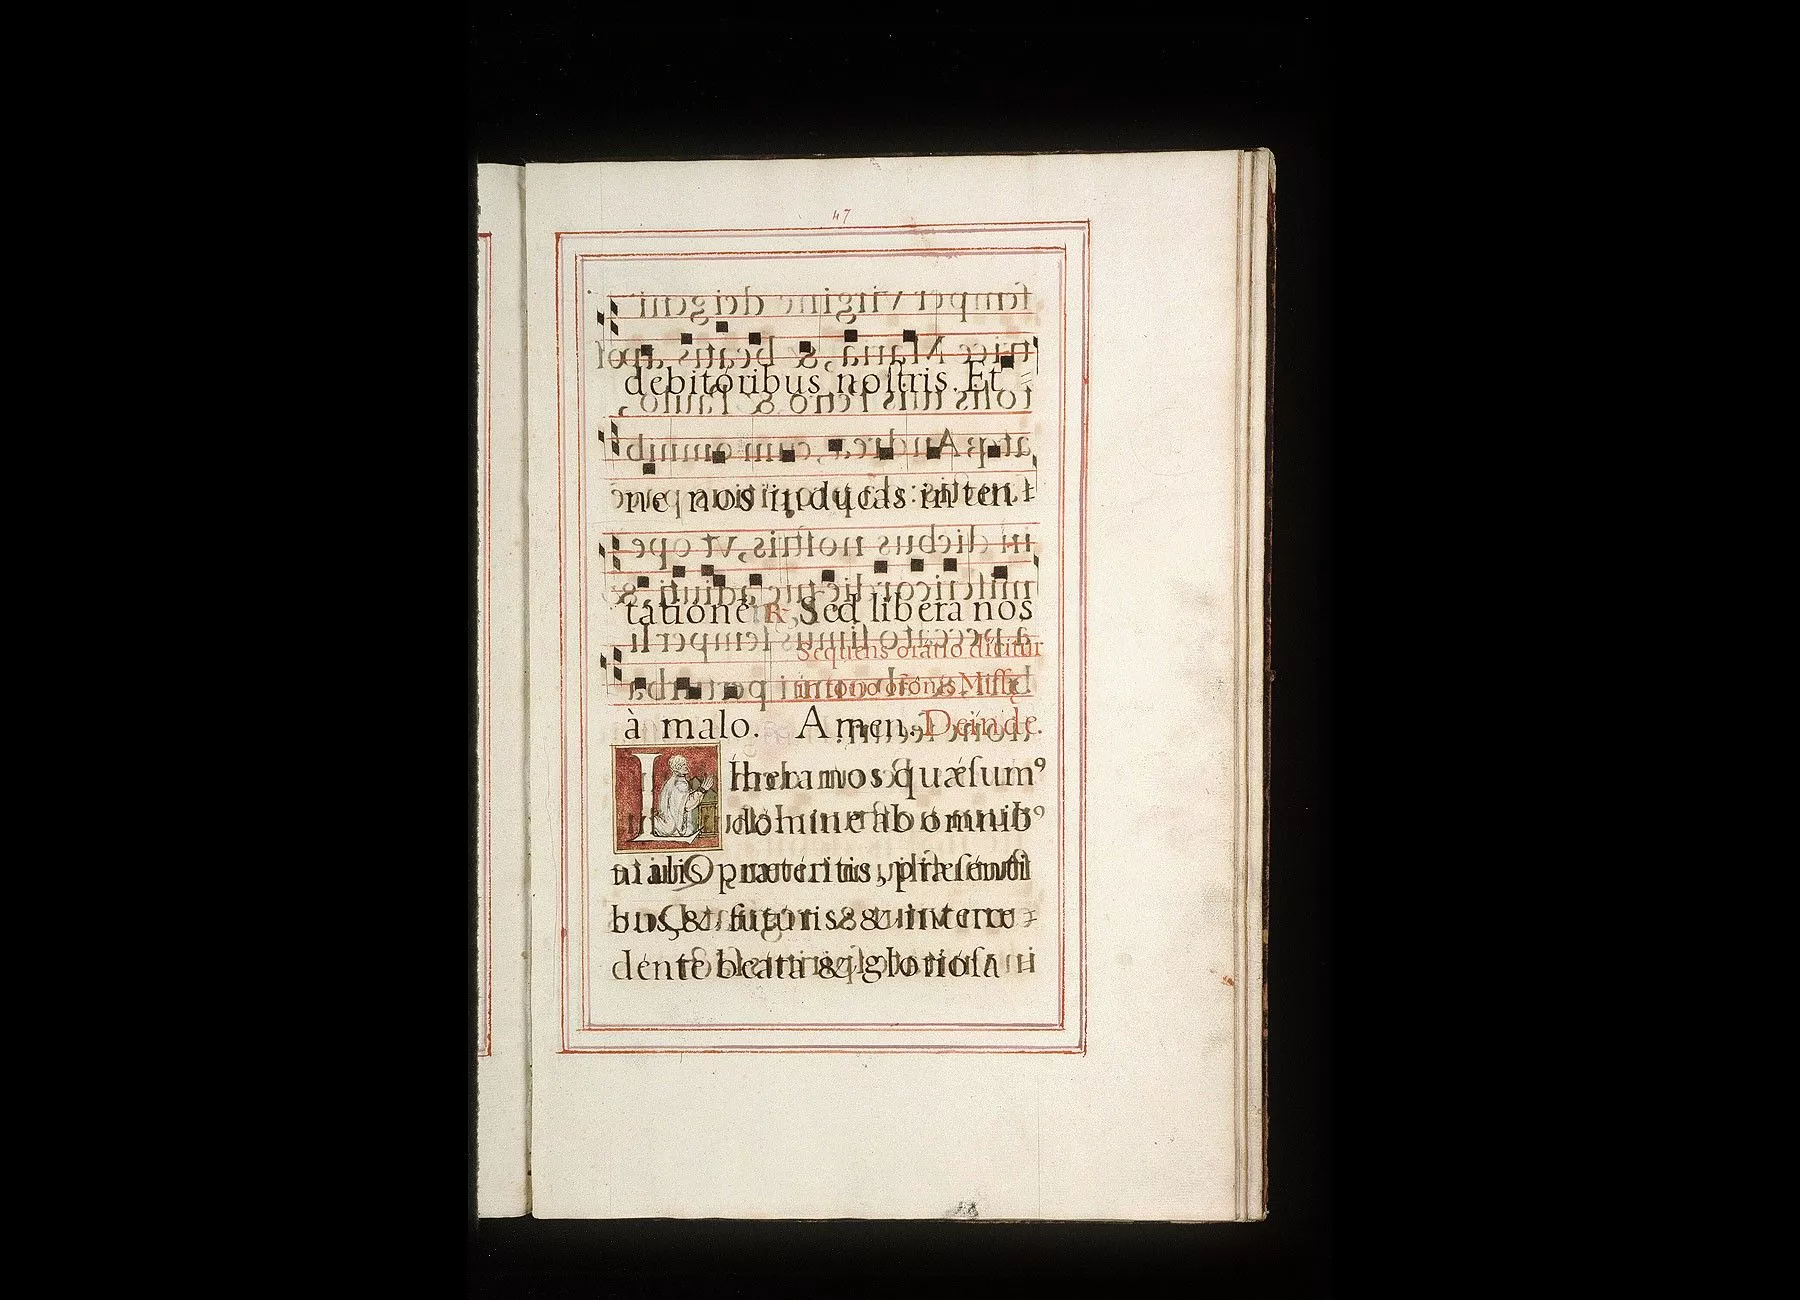 47
debitoribus noſtris. Et
ne nos inducas in ten
tatione ℟ Sed libera nos
Sequens oratio dicitur
in tono orõnis Miſſę
à malo. Amen. Deinde.
Libera nos quæſumꝰ
domine ab omnibꝰ
malis præteritis, præſenti
bus, & futuris: & interce
dente beata & glorioſa